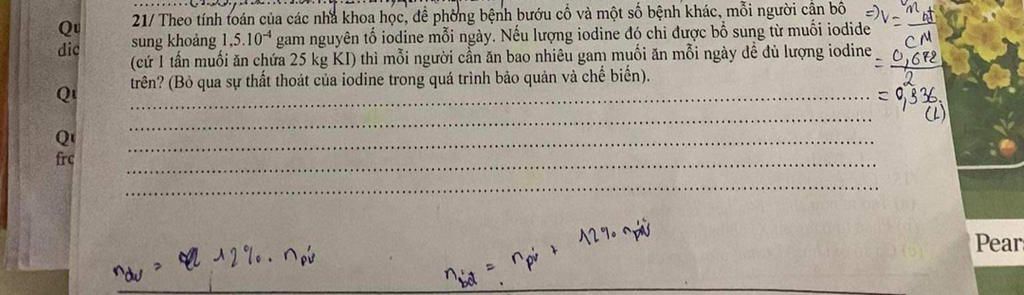 Qu
dic
Qu
Qu
frc
21/ Theo tính toán của các nhà khoa học, để phòng bệnh bướu cổ và một số bệnh khác, mỗi người cần bổ
sung khoảng 1,5.10⁻⁴ gam nguyên tố iodine mỗi ngày. Nếu lượng iodine đó chỉ được bổ sung từ muối iodide
(cứ 1 tấn muối ăn chứa 25 kg KI) thì mỗi người cần ăn bao nhiêu gam muối ăn mỗi ngày để đủ lượng iodine
trên? (Bỏ qua sự thất thoát của iodine trong quá trình bảo quản và chế biến).
=> V =
CM
= 0,672
2
= 0,336
(L)
n dư = 12%. n pư
n bđ = n pư + 12% n pư
Pear